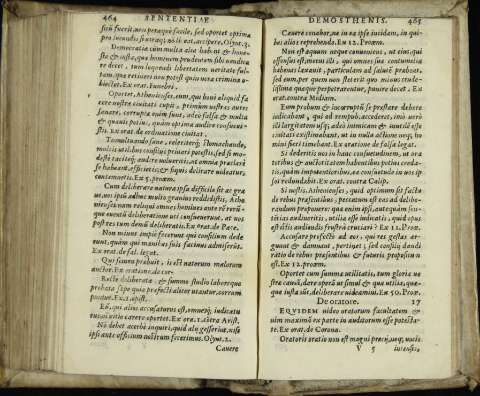 464 SENTENTIAE
sicū fuerit, neu peraquè facile, sed oportet optima
pro iucundis
accipere. Olynt. 3.
Democratia cùm multa alia habent & hone-
sta & iusta, quæ hominem prudentem sibi vendica
re decet, tum loquendi libertatem veritate sul-
tam, quæ retineri non potest quin vera crimina
obiiciat. Ex orat. funebri.
Oportet, Athenienses, eum, qui boni aliquid fa
cere nostræ ciuitati cupit, primùm vestras aures
sanare, corruptæ enim sunt, adeò falsa & multa
& quauis potius, quàm optima audire consueui-
stis. Ex orat. de ordinatione ciuitat.
Tumultuando sanè, celeriterq; stomachando,
molitis utilibus consiliis priuari potestis, sed si mo-
destè tacitéq; audire volueritis, ad omnia præclarè
se habeant, afficietis; & siquis delirare videatur,
contemnetis. Ex 5. proœm.
Cum deliberare natura ipsa difficile sit ac gra
ue, vos ipsū adhuc multo grauius reddidistis, Athe
nienses: nam reliqui omnes homines ante rē rerūq́;
que euentū deliberatione vti consueuerunt, at vos
post res tum demū deliberatis. Ex orat. de Pace.
Non minus impiè fecerunt qui consilium dede
runt, quàm qui manibus suis facinus admiserūt.
Ex orat. de fal. legat.
Qui semen præbuit, is est natorum malorum
auctor. Ex oratione de cor.
Rectè deliberata & summo studio laboreque
probata sæpe quia præfecti aliter utantur, corrum
puntur. Ex. 1. epist.
Eū, qui alios accusaturus est, omneiq; iudicatu
rus aliis vitio carere oportet. Ex or. 2. cōtra Arist.
Nō debet acerbè inquiri, quid alij gesserint, nisi
ipsi ante officium nostrum fecerimus. Olynt. 2.
Cauere
DEMOSTHENIS. 465
Cauere conabor, ne in ea ipse incidam, in qui-
bus alios reprehendo. Ex 12. Proœm.
Non est æquum neque conueniens, ut eius, qui
offensus est, metu illi, qui omnes siue contumelia
habeas laxauit, particulam ad salutē præbeat,
sed eum, per quem non steterit quo minus trucu-
lissima quæque perpetrarentur, punire decet. Ex
orat. contra Midiam.
Eum probum & incorruptū se præstare debere
iudicabant, qui ad rempub. accederet, imò verò
illi largitatem usq; adeò inimicam & inutilē esse
ciuitati existimabant, ut in nulla actione neq; ho
mini fieri timebant. Ex oratione de falsa legat.
Si dederitis uos in hanc consuetudinem, ut ora
toribus & auctoritatem habentibus potius creda-
tis, quàm impotentioribus, ea consuetudo in vos ip
sos redundabit. Ex orat. contra Calip.
Si iustis, Athenienses, quid optimum sit factu
de rebus præsentibus, peccatum est eos ad delibe-
randum proponere: quæ enim ipsi, antequàm sen-
tētias audiueritis, utilia esse iudicatis, quid opus
est diis audiendis frustrà cruciari? Ex 11. Proœ.
Accusare profectò ad eos, qui res gestas ar-
guunt & damnant, pertinet, sed consilij dandi
ratio de rebus præsentibus & futuris proposita
est. Ex 12. proœm.
Oportet cum summæ utilitatis, tum gloriæ ue
stræ causâ, dare operā ut simul & quæ utilia, quæ-
que iusta sūt, deliberare videamini. Ex 50. Proœ.
De oratore. 17
EQVIDEM video oratorum facultatem &
vim maximā ex parte in auditorum esse potesta-
te. Ex orat. de Corona.
Oratoris oratio non est magni precij, neq; vocis
V 5